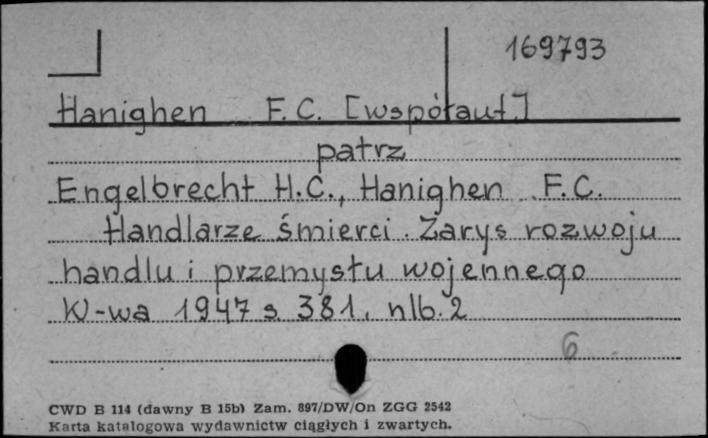 169793
Hanighen F.C. [współaut.]
patrz
Engelbrecht H.C., Hanighen F.C.
Handlarze śmierci. Zarys rozwoju
handlu i przemysłu wojennego
W-wa 1947 s. 381, nlb. 2
6
CWD B 114 (dawny B 15b) Zam. 897/DW/On ZGG 2542
Karta katalogowa wydawnictw ciągłych i zwartych.